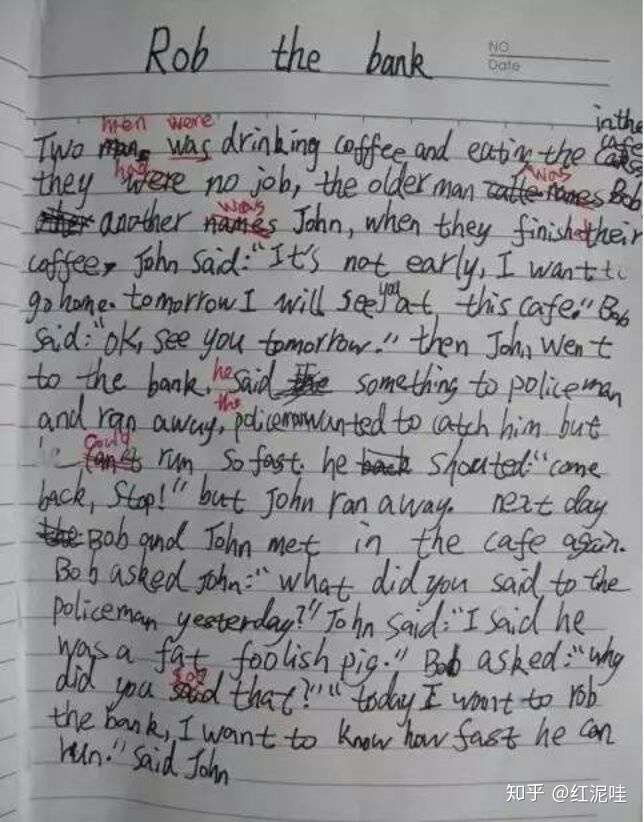 Rob the bank
NO.
Date
men were in the
Two man was drinking coffee and eating the cafe
had was
they were no job, the older man Bob
was
another names John, when they finished their
coffee, John said:"It's not early, I want to
go home. tomorrow I will see you at this cafe." Bob
said:"OK, see you tomorrow." then John went
to the bank. he said something to policeman
and ran away, the policeman wanted to catch him but
could
he can't run so fast. he shouted:"come
back, stop!" but John ran away. next day
Bob and John met in the cafe again.
Bob asked John:"what did you said to the
policeman yesterday?" John said:"I said he
was a fat foolish pig." Bob asked:"why
say
did you said that?" "today I want to rob
the bank, I want to know how fast he can
run." said John
知乎 @红泥哇